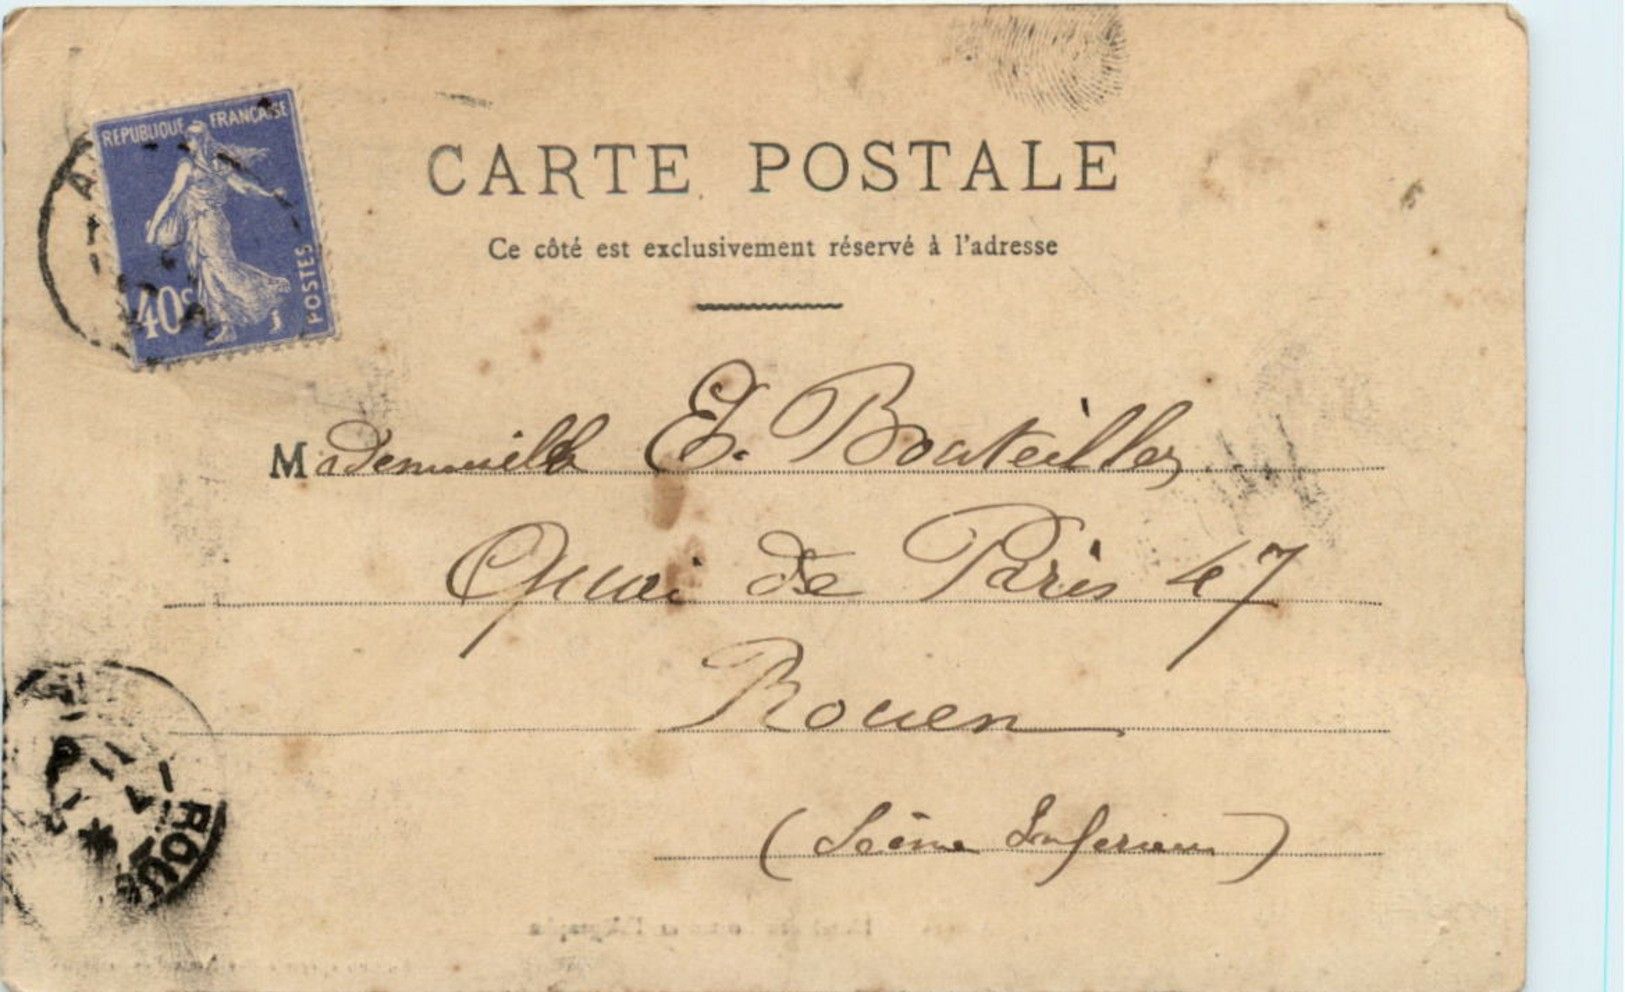 REPUBLIQUE FRANÇAISE
POSTES
40c
CARTE POSTALE
Ce côté est exclusivement réservé à l'adresse
Mademoiselle E. Bouteiller
Quai de Paris 47
Rouen
(Seine Inferieure)
ROUEN